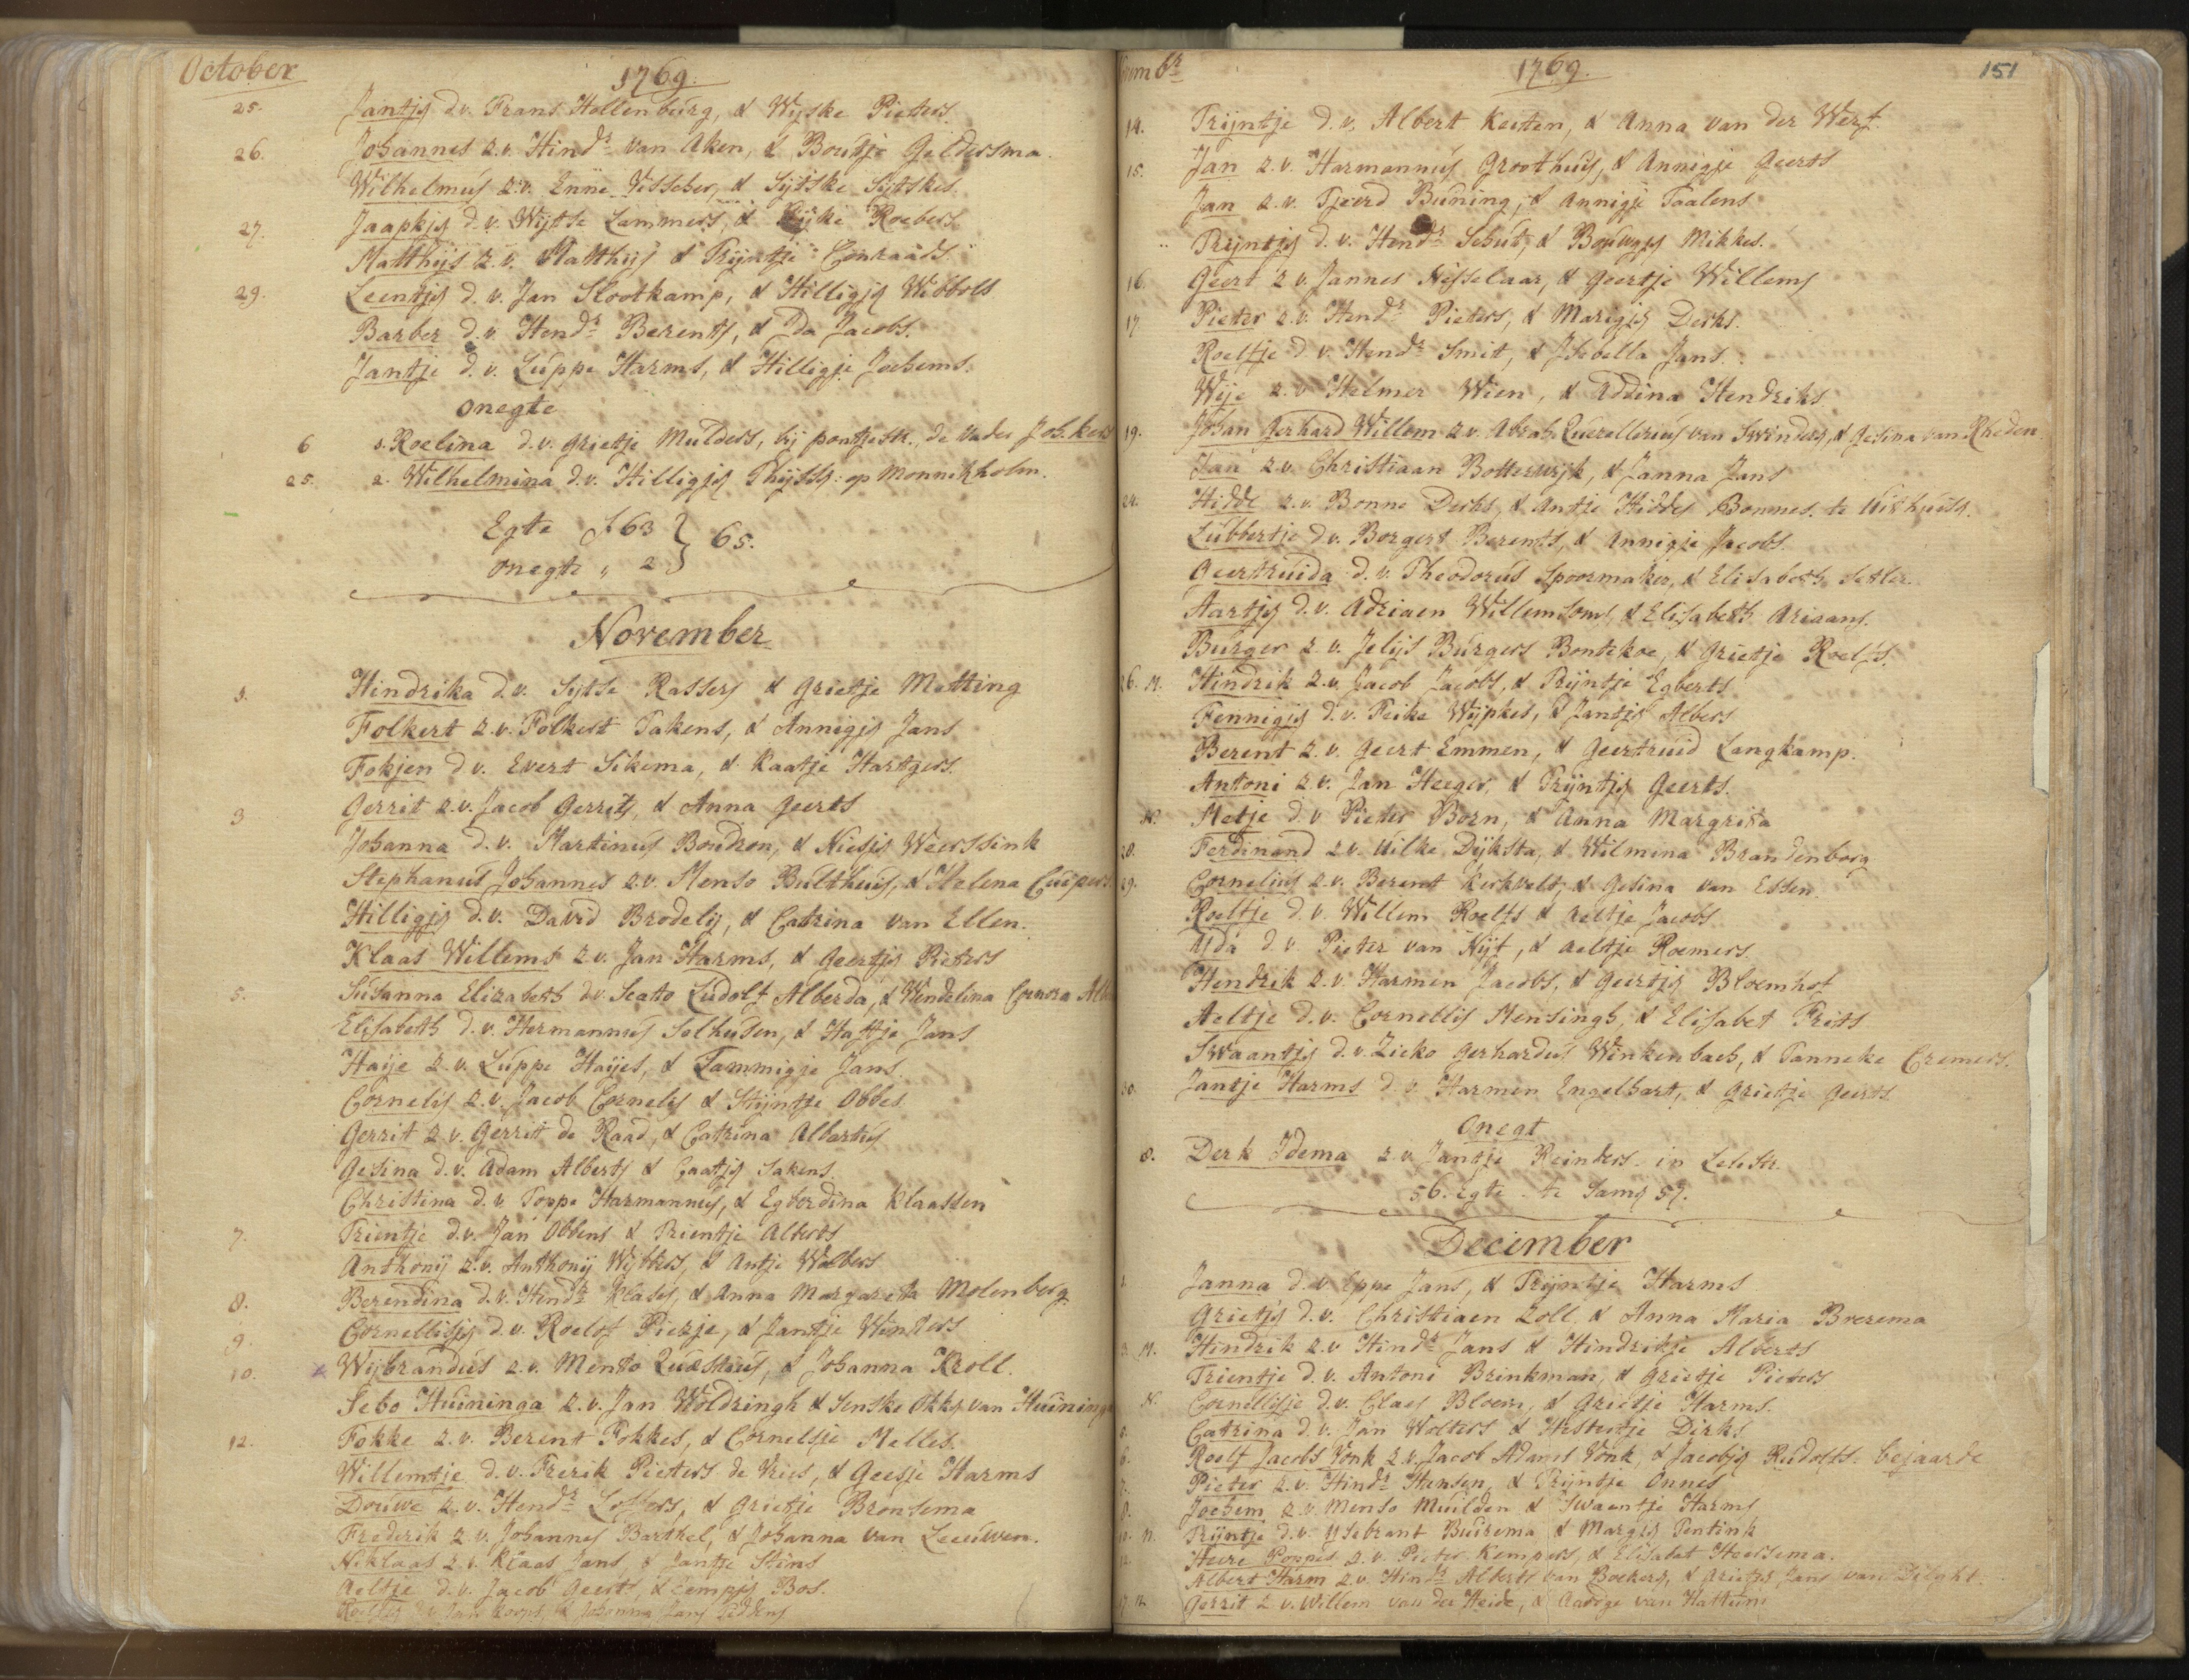 October
1769.
25. Jantjg d.v. Frans Hollenburg, & Wyske Pieters.
26. Johannes z.v. Hindr van Aken, & Boutje Geldersma.
Wilhelmus z.v. Enne Visscher, & Sijtske Sijtskes.
27. Jaapkjg d.v. Wijtse Lammers, & Roebers
Matthijs z.v. Matthijs & Trijntje Conraads
29. Leentjg d.v. Jan Slootkamp, & Hilligjg Wibbols
Barber d.v. Hendr Berents, & Ida Jacobs.
Jantje d.v. Luppe Harms, & Hilligje Jochems.
onegte
6 1. Roelina d.v. Grietje Mulders, bij pontjestr. de Vader Joh.
25. 2. Wilhelmina d.v. Hilligjg Thijssg: op Monnikholm.
Egte 63 } 65.
onegte " 2
November
1. Hindrika d.v. Sijtse Rassers & Grietje Matting
Folkert z.v. Folkert Takens, & Annigjg Jans
Fokjen d.v. Evert Sikema, & Kaatje Hartgers.
3 Gerrit z.v. Jacob Gerrits, & Anna Geerts
Johanna d.v. Martinus Boudron, & Niesjg Weerssink
Stephanus Johannes z.v. Menso Bulthuis, & Helena Cuipers
Hilligjg d.v. David Brodelis, & Catrina van Ellen.
Klaas Willems z.v. Jan Harms, & Geertjg Pieters
5. Susanna Elizabeth d.v. Scato Ludolf Alberda, & Wendelina Cornera
Elisabeth d.v. Hermannus Solhusen, & Haftje Jans
Haije z.v. Luppe Haijes, & Tammigje Jans.
Cornelis z.v. Jacob Cornelis & Stijntje Obbes
Gerrit z.v. Gerrit de Raad, & Catrina Albartus
Gesina d.v. Adam Alberts & Caatjg Sakens
Christina d.v. Poppe Harmannus, & Egberdina Klaassen
7. Trientje d.v. Jan Obbens & Trientje Alberts
Anthonij z.v. Anthonij Wijbbes, & Antje Wolbers
8. Berendina d.v. Hendr Klases, & Anna Margareta Molenberg
9. Cornellisjg d.v. Roelof Piekje, & Jantje Winters
10. Wijbrandus z.v. Mento Quästius, & Johanna Kroll.
Sebo Huininga z.v. Jan Woldringh & Senske Okkes van Huininga
12. Fokke z.v. Berent Fokkes, & Cornelsje Melles.
Willemtje d.v. Frerik Pieters de Vries, & Geesje Harms
Douwe z.v. Hendr Loffers, & Grietje Bronsema
Frederik z.v. Johannes Barthel, & Johanna van Leeuwen.
Niklaas z.v. Klaas Jans, & Jantje Stins
Aeltje d.v. Jacob Geerts, & Lempjg Bos.
Roelfjg d.v. Jan & Johanna Jans
br
1769.
151
14. Trijntje d.v. Albert Kersten, & Anna van der Werf.
15. Jan z.v. Harmannus Groothuis, & Annigje Geerts
Jan z.v. Tjeerd Buning, & Annigje Taalens
" Trijntjg d.v. Hendr Schut, & Bouwgjg Mikkes.
16. Geert z.v. Jannes Nesselaar, & Geertje Willems
17. Pieter z.v. Hendr Pieters, & Marigjg Derks.
Roelfje d.v. Hendr Smit, & Isabella Jans
Weje z.v. Helmer Wien, & Addina Hendriks
19. Johan Gerhard Willem z.v. Abrah. Quevellerius van Swinderg, & Gesina van Rheden
Jan z.v. Christiaan Botterwijk, & Janna Jans
24. Hidde z.v. Bonne Derks, & Antje Hiddes Bonnes. te Uithuisg.
Lubbertje d.v. Borgert Berents, & Annigje Jacobs.
Geertruida d.v. Theodorus Spoormaker, & Elisabeth Setler.
Aartjg d.v. Adriaen Willemsoms, & Elisabeth Ariaans.
Burger z.v. Jelijs Burgers Bontekoe, & Grietje Roelfs.
26. M. Hindrik z.v. Jacob Jacobs, & Trijntje Egberts
Fennigjg d.v. Feike Wijpkes, & Jantjg Albers
Berent z.v. Geert Emmen, & Geertruid Langkamp.
Antoni z.v. Jan Heeger, & Trijntjg Geerts.
N. Metje d.v. Pieter Born, & Anna Margrita
28. Ferdinand z.v. Uilke Dijksta, & Wilmina Brandenborg
29. Cornelius z.v. Berent Kerkvelt, & Gesina van Essen
Roelfje d.v. Willem Roelfs & Aeltje Jacobs
Yda d.v. Pieter van Nijt, & Aeltje Roemers
Hendrik z.v. Harmen Jacobs, & Geertjg Bloemhof
Aeltje d.v. Cornellis Mensingh, & Elisabet Frits
Swaantjg d.v. Zicko Gerhardus Winkenbach, & Tanneke Cremers.
30. Jantje Harms d.v. Harmen Engelhart, & Grietje Geerts.
onegt
8. Derk Idema z.v. Jantje Reinders in Leliestr.
56. Egte te Samg 57.
December
1. Janna d.v. Eppe Jans, & Trijntje Harms
Grietjg d.v. Christiaen Zoll & Anna Maria Brezema
3. M. Hindrik z.v. Hindr Jans & Hindrikje Alberts
Trientje d.v. Antoni Brinkman, & Grietje Pieters
N. Cornellisje d.v. Claes Bloem, & Grietje Harms.
Catrina d.v. Jan Wolters & Hestertje Dirks
6. Roelf Jacobs Vonk z.v. Jacob Adams Vonk, & Jacobjg Rudolfs. bejaarde
7. Pieter z.v. Hindr Hensen, & Trijntje Onnes
8. Jochem z.v. Menso Muilden & Swaentje Harms
10. N. Trijntje d.v. Ysebrant Buirema & Margjg Pentink
12. Heere Poppes z.v. Pieter Kempers, & Elisabet Heersema.
Albert Harm z.v. Hindr Alberts van Boekerg, & Grietjg Jans van Dilght.
17. N. Gerrit z.v. Willem van der Heide, & Aadrge van Hattum